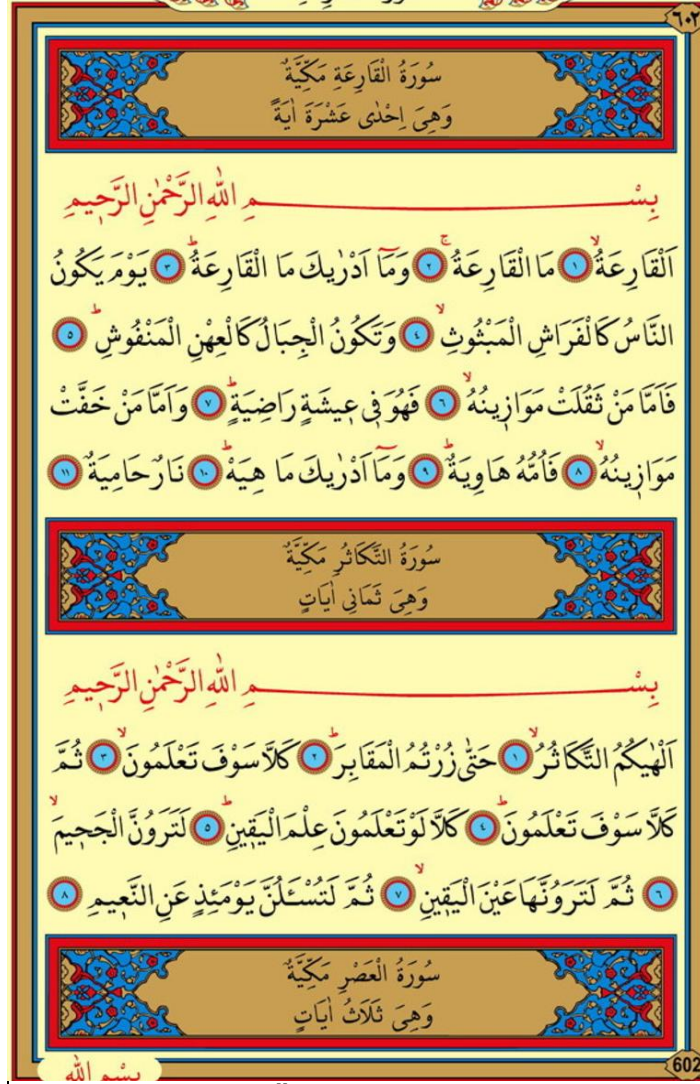 ٦٠٢
سُورَةُ الْقَارِعَةِ مَكِّيَّةٌ
وَهِيَ اِحْدٰى عَشْرَةَ اٰيَةً
بِسْمِ اللّٰهِ الرَّحْمٰنِ الرَّح۪يمِ
اَلْقَارِعَةُۙ ﴿١﴾ مَا الْقَارِعَةُۚ ﴿٢﴾ وَمَٓا اَدْرٰيكَ مَا الْقَارِعَةُۜ ﴿٣﴾ يَوْمَ يَكُونُ
النَّاسُ كَالْفَرَاشِ الْمَبْثُوثِۙ ﴿٤﴾ وَتَكُونُ الْجِبَالُ كَالْعِهْنِ الْمَنْفُوشِۜ ﴿٥﴾
فَاَمَّا مَنْ ثَقُلَتْ مَوَاز۪ينُهُۙ ﴿٦﴾ فَهُوَ ف۪ي ع۪يشَةٍ رَاضِيَةٍۜ ﴿٧﴾ وَاَمَّا مَنْ خَفَّتْ
مَوَاز۪ينُهُۙ ﴿٨﴾ فَاُمُّهُ هَاوِيَةٌۜ ﴿٩﴾ وَمَٓا اَدْرٰيكَ مَا هِيَهْۜ ﴿١٠﴾ نَارٌ حَامِيَةٌ ﴿١١﴾
سُورَةُ التَّكَاثُرِ مَكِّيَّةٌ
وَهِيَ ثَمَانِي اٰيَاتٍ
بِسْمِ اللّٰهِ الرَّحْمٰنِ الرَّح۪يمِ
اَلْهٰيكُمُ التَّكَاثُرُۙ ﴿١﴾ حَتّٰى زُرْتُمُ الْمَقَابِرَۜ ﴿٢﴾ كَلَّا سَوْفَ تَعْلَمُونَۙ ﴿٣﴾ ثُمَّ
كَلَّا سَوْفَ تَعْلَمُونَۜ ﴿٤﴾ كَلَّا لَوْ تَعْلَمُونَ عِلْمَ الْيَق۪ينِۜ ﴿٥﴾ لَتَرَوُنَّ الْجَح۪يمَۙ
﴿٦﴾ ثُمَّ لَتَرَوُنَّهَا عَيْنَ الْيَق۪ينِۙ ﴿٧﴾ ثُمَّ لَتُسْـَٔلُنَّ يَوْمَئِذٍ عَنِ النَّع۪يمِ ﴿٨﴾
سُورَةُ الْعَصْرِ مَكِّيَّةٌ
وَهِيَ ثَلَاثُ اٰيَاتٍ
بِسْمِ اللّٰهِ
602